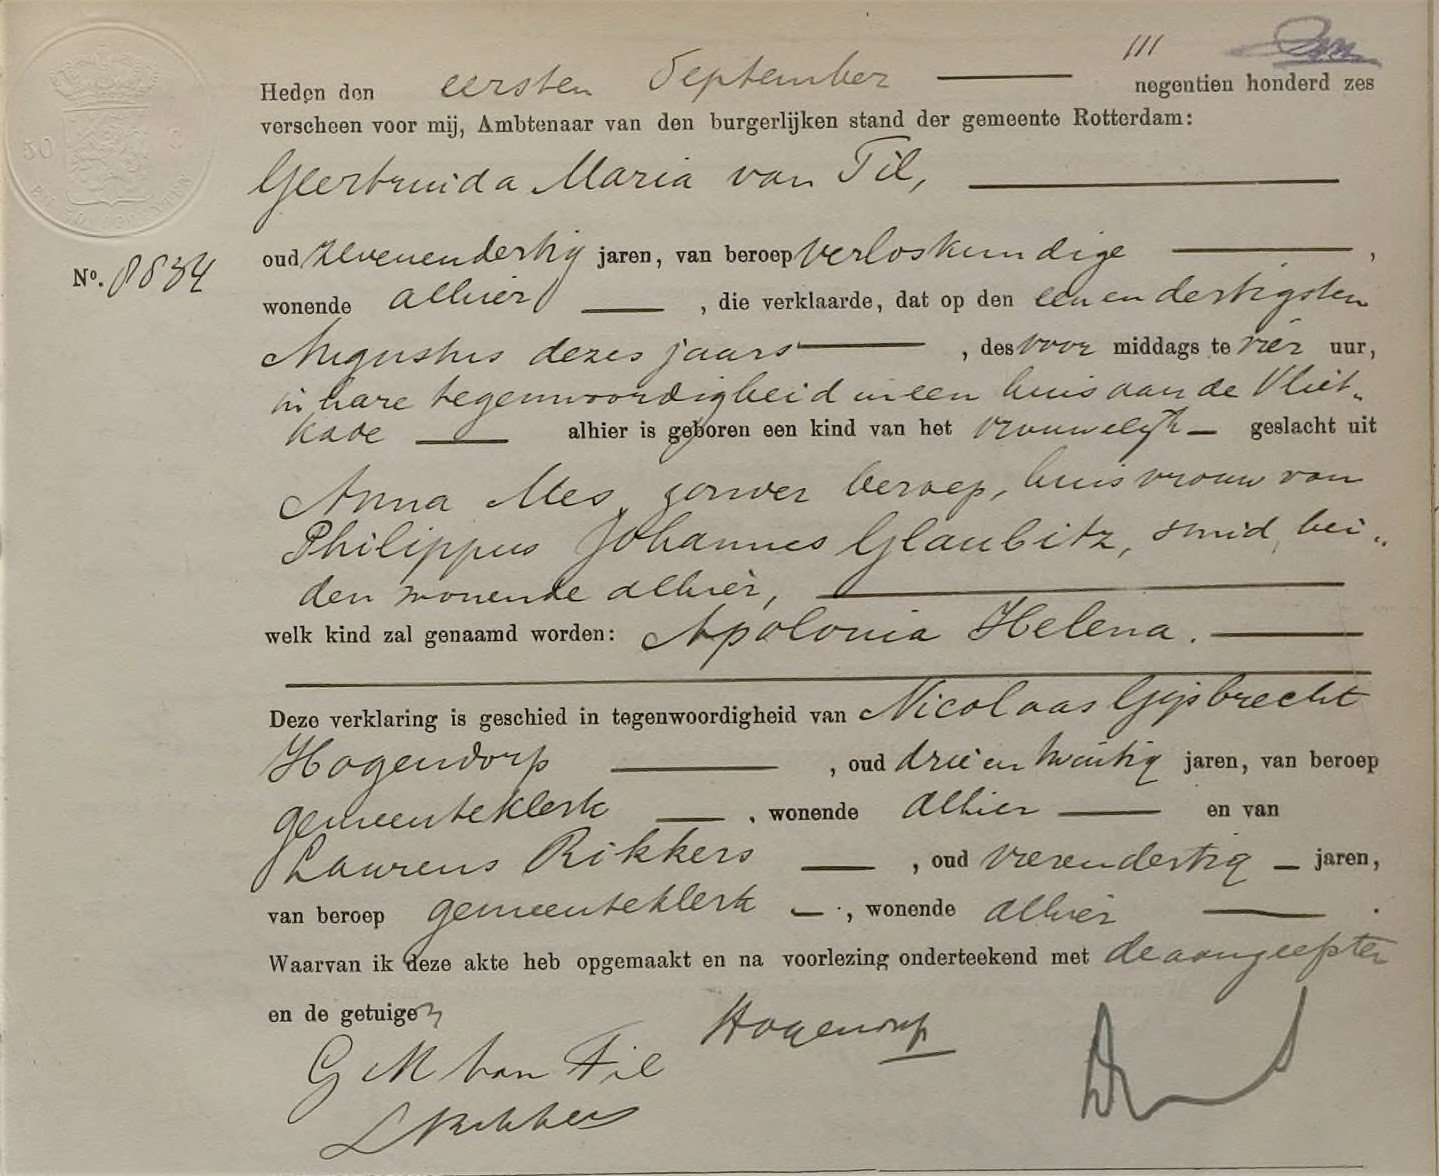 III
Heden den eersten September negentien honderd zes
verscheen voor mij, Ambtenaar van den burgerlijken stand der gemeente Rotterdam:
Geertruida Maria van Til,
oud zevenendertig jaren, van beroep verloskundige ,
No. 8834
wonende alhier , die verklaarde, dat op den eenendertigsten
Augustus dezes jaars , des voor middags te vier uur,
in hare tegenwoordigheid in een huis aan de Vliet-
kade alhier is geboren een kind van het vrouwelijk geslacht uit
Anna Mes, zonder beroep, huisvrouw van
Philippus Johannes Glaubitz, smid, bei-
den wonende alhier,
welk kind zal genaamd worden: Apolonia Helena.
Deze verklaring is geschied in tegenwoordigheid van Nicolaas Gijsbrecht
Hogendorp , oud drieentwintig jaren, van beroep
gemeenteklerk , wonende alhier en van
Laurens Rikkers , oud vierendertig jaren,
van beroep gemeenteklerk , wonende alhier .
Waarvan ik deze akte heb opgemaakt en na voorlezing onderteekend met de aangeefster
en de getuigen
Hogendorp
G M van Til
L Rikkers